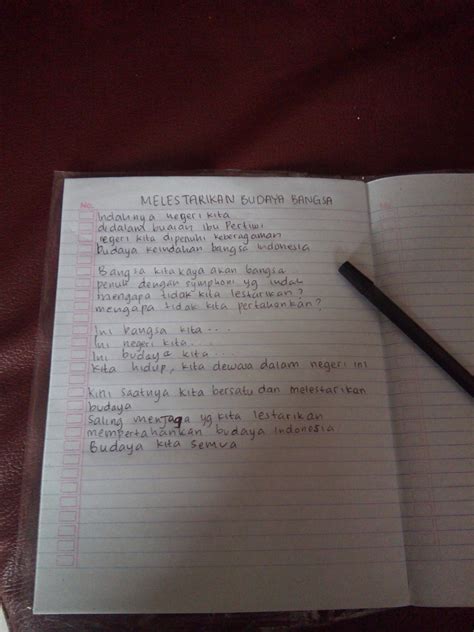 MELESTARIKAN BUDAYA BANGSA
No.
Indahnya negeri kita
didalam buaian Ibu Pertiwi
negeri kita dipenuhi keberagaman
budaya keindahan bangsa Indonesia
Bangsa kita kaya akan bangsa
penuh dengan symphoni yg indah
mengapa tidak kita lestarikan?
mengapa tidak kita pertahankan?
Ini bangsa kita...
Ini negeri kita...
Ini budaya kita...
Kita hidup, kita dewasa dalam negeri ini
Kini saatnya kita bersatu dan melestarikan
budaya
Saling menjaga yg kita lestarikan
mempertahankan budaya Indonesia
Budaya kita semua